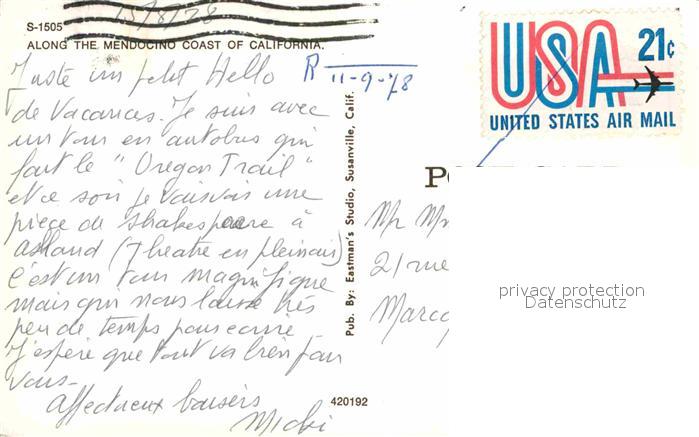 15/8/78
S-1505
ALONG THE MENDOCINO COAST OF CALIFORNIA.
Juste un petit Hello
de vacances. Je suis avec
un tour en autobus qui
fait le "Oregon Trail"
et ce soir je vais voir une
piece de Shakespeare à
Ashland (Theatre en plein air)
C'est un tour magnifique
mais qui nous laisse très
peu de temps pour ecrire
J'espère que tout va bien pour
vous-
Affectueux baisers
Micki
R 11-9-78
Pub. By: Eastman's Studio, Susanville, Calif.
420192
USA 21¢
UNITED STATES AIR MAIL
PO
Mr Mr
21 rue
Marcq
privacy protection
Datenschutz